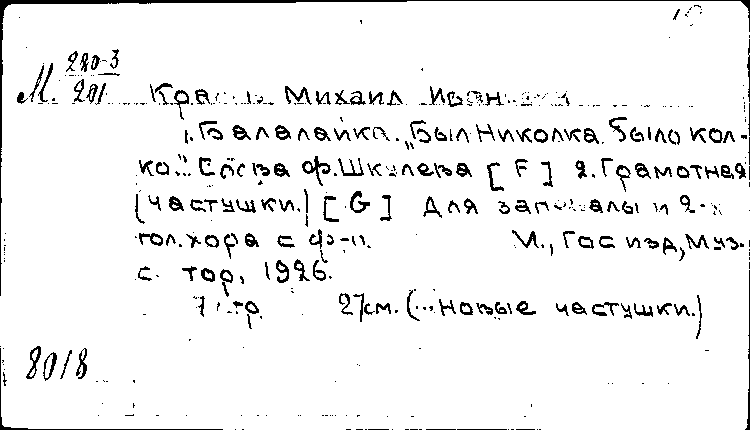 М. 220-3
201
Крас Михаил Иванович
1. Балалайка. „Был Николка, было кол-
ко." Слова ф. Шкулева [F] 2. Грамотная
(частушки.) [G] Для запевалы и 2-х
гол. хора с ф-п. М., Госизд, Муз.
с тор, 1926.
7 стр. 27см. (...Новые частушки.)
8018